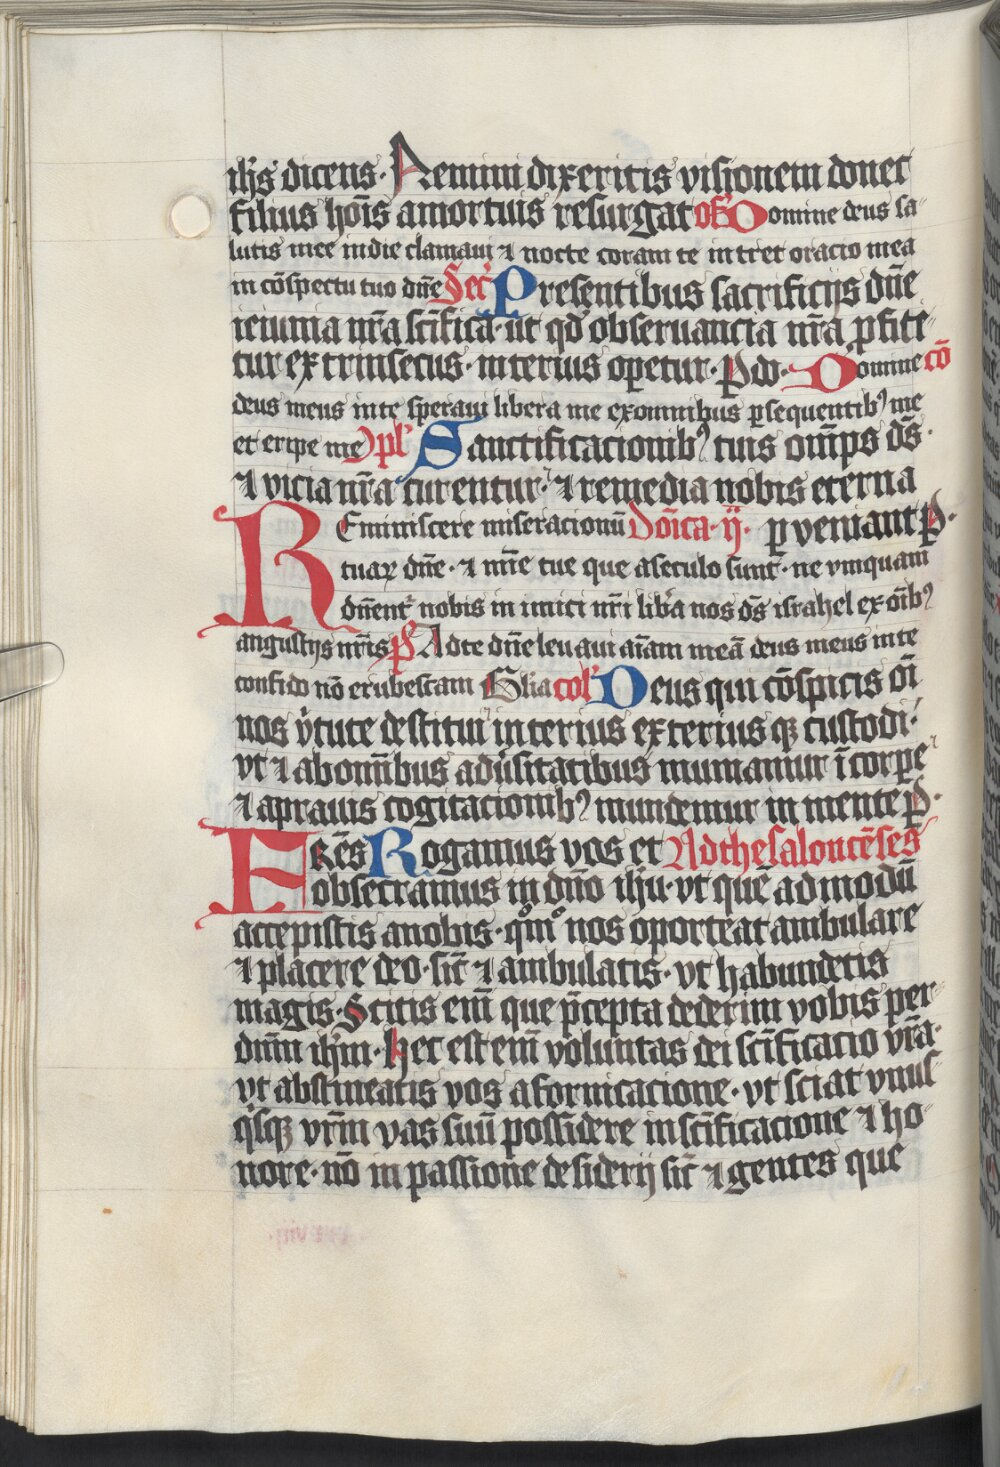 ihs dicens. Nemini dixeritis visionem donec
filius hoīs amortuis resurgat of̄ Domine deus sa-
lutis mee indie clamaui ⁊ nocte coram te intret oracio mea
in cōspectu tuo dn̄e Secͬ Presentibus sacrificijs dn̄e
ieiunia nr̄a scīfica. ut qd̓ obseruancia nr̄a ꝓfite-
tur extrinsecus. interius operetur. P dō. Domine cō
deus meus inte speraui libera me exomnibus ꝑsequentibꝰ me
et eripe me Ꝯpl̓ Sanctificacionibꝰ tuis om̄ps ds̄.
⁊ vicia nr̄a curentur. ⁊ remedia nobis eterna
Reminiscere miseracionū Don̄ica. ij. perueniant P.
tuaꝝ dn̄e. ⁊ mīe tue que aseculo sunt. ne vmquam
dn̄entͬ nobis in imici nr̄i lib̓a nos ds̄ israhel ex oīb̓ꝰ
angustijs nr̄is p̄s Adte dn̄e leuaui aīam meā deus meus inte
confido nō erubescam Gl̄ia col̓ Deus qui cōspicis oī
nos v̓tute destituiͬ interius exterius qꝫ custodi.
vt ⁊ abomībus adu̓sitatibus muniamur ī corpe
⁊ aprauis cogitacionibꝰ mundemur in mente P.
FRēs Rogamus vos et Adthesalonicēses
obsecramus in dn̄o ihu. vt quē admodū
accepistis anobis. qͦmͦ nos oporteat ambulare
⁊ placere deo. sic̄ ⁊ ambulatis. vt habundetis
magis. Scitis enī que p̄cepta dederim vobis per
dnm̄ ihm̄. Hec est enī voluntas dei scīficacio vr̄a.
vt abstineatis vos afornicacione. vt sciat vnus
qͥsqꝫ vr̄m vas suū possidere inscīficacione ⁊ ho-
nore. nō in passione desiderij sic̄ ⁊ gentes que